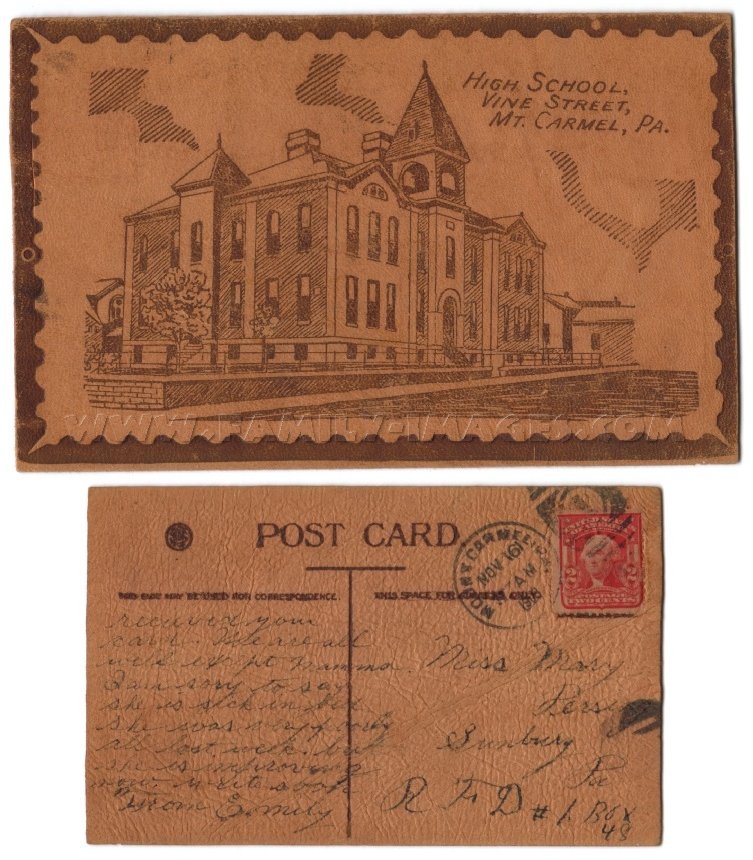 HIGH SCHOOL,
VINE STREET,
MT. CARMEL, PA.
WWW.FAMILY-IMAGES.COM
POST CARD
THIS SIDE MAY BE USED FOR CORRESPONDENCE.
THIS SPACE FOR ADDRESS ONLY.
MOUNT CARMEL
NOV 16
AM
POSTAGE
TWO CENTS
2 2
received your
card. We are all
well except Mamma.
I am sory to say
she is sick in bed
she was very poorly
all last week. but
she is improving
now. write soon
From Emily
Miss Mary
Sunbury
Pa
R F D # 1. Box
48